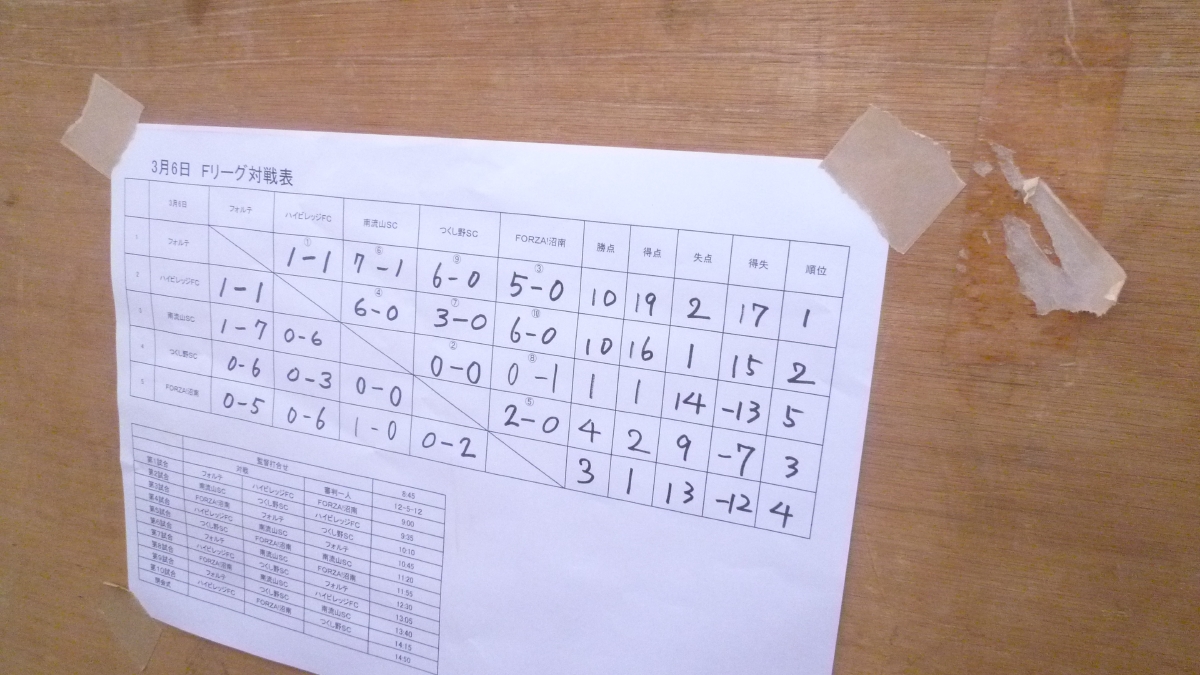 3月6日 Fリーグ対戦表
3月6日 フォルテ ハイビレッジFC 南流山SC つくし野SC FORZA!沼南 勝点 得点 失点 得失 順位
1 フォルテ ① 1-1 ⑥ 7-1 ⑨ 6-0 ③ 5-0 10 19 2 17 1
2 ハイビレッジFC 1-1 ④ 6-0 ⑦ 3-0 ⑩ 6-0 10 16 1 15 2
3 南流山SC 1-7 0-6 ② 0-0 ⑧ 0-1 1 1 14 -13 5
4 つくし野SC 0-6 0-3 0-0 ⑤ 2-0 4 2 9 -7 3
5 FORZA!沼南 0-5 0-6 1-0 0-2 3 1 13 -12 4
監督打合せ 8:45
対戦 審判一人 12-5-12
第1試合 フォルテ ハイビレッジFC FORZA!沼南 9:00
第2試合 南流山SC つくし野SC ハイビレッジFC 9:35
第3試合 FORZA!沼南 フォルテ つくし野SC 10:10
第4試合 ハイビレッジFC 南流山SC フォルテ 10:45
第5試合 つくし野SC FORZA!沼南 南流山SC 11:20
第6試合 フォルテ 南流山SC FORZA!沼南 11:55
第7試合 ハイビレッジFC つくし野SC フォルテ 12:30
第8試合 FORZA!沼南 南流山SC ハイビレッジFC 13:05
第9試合 フォルテ つくし野SC 南流山SC 13:40
第10試合 ハイビレッジFC FORZA!沼南 つくし野SC 14:15
閉会式 14:50